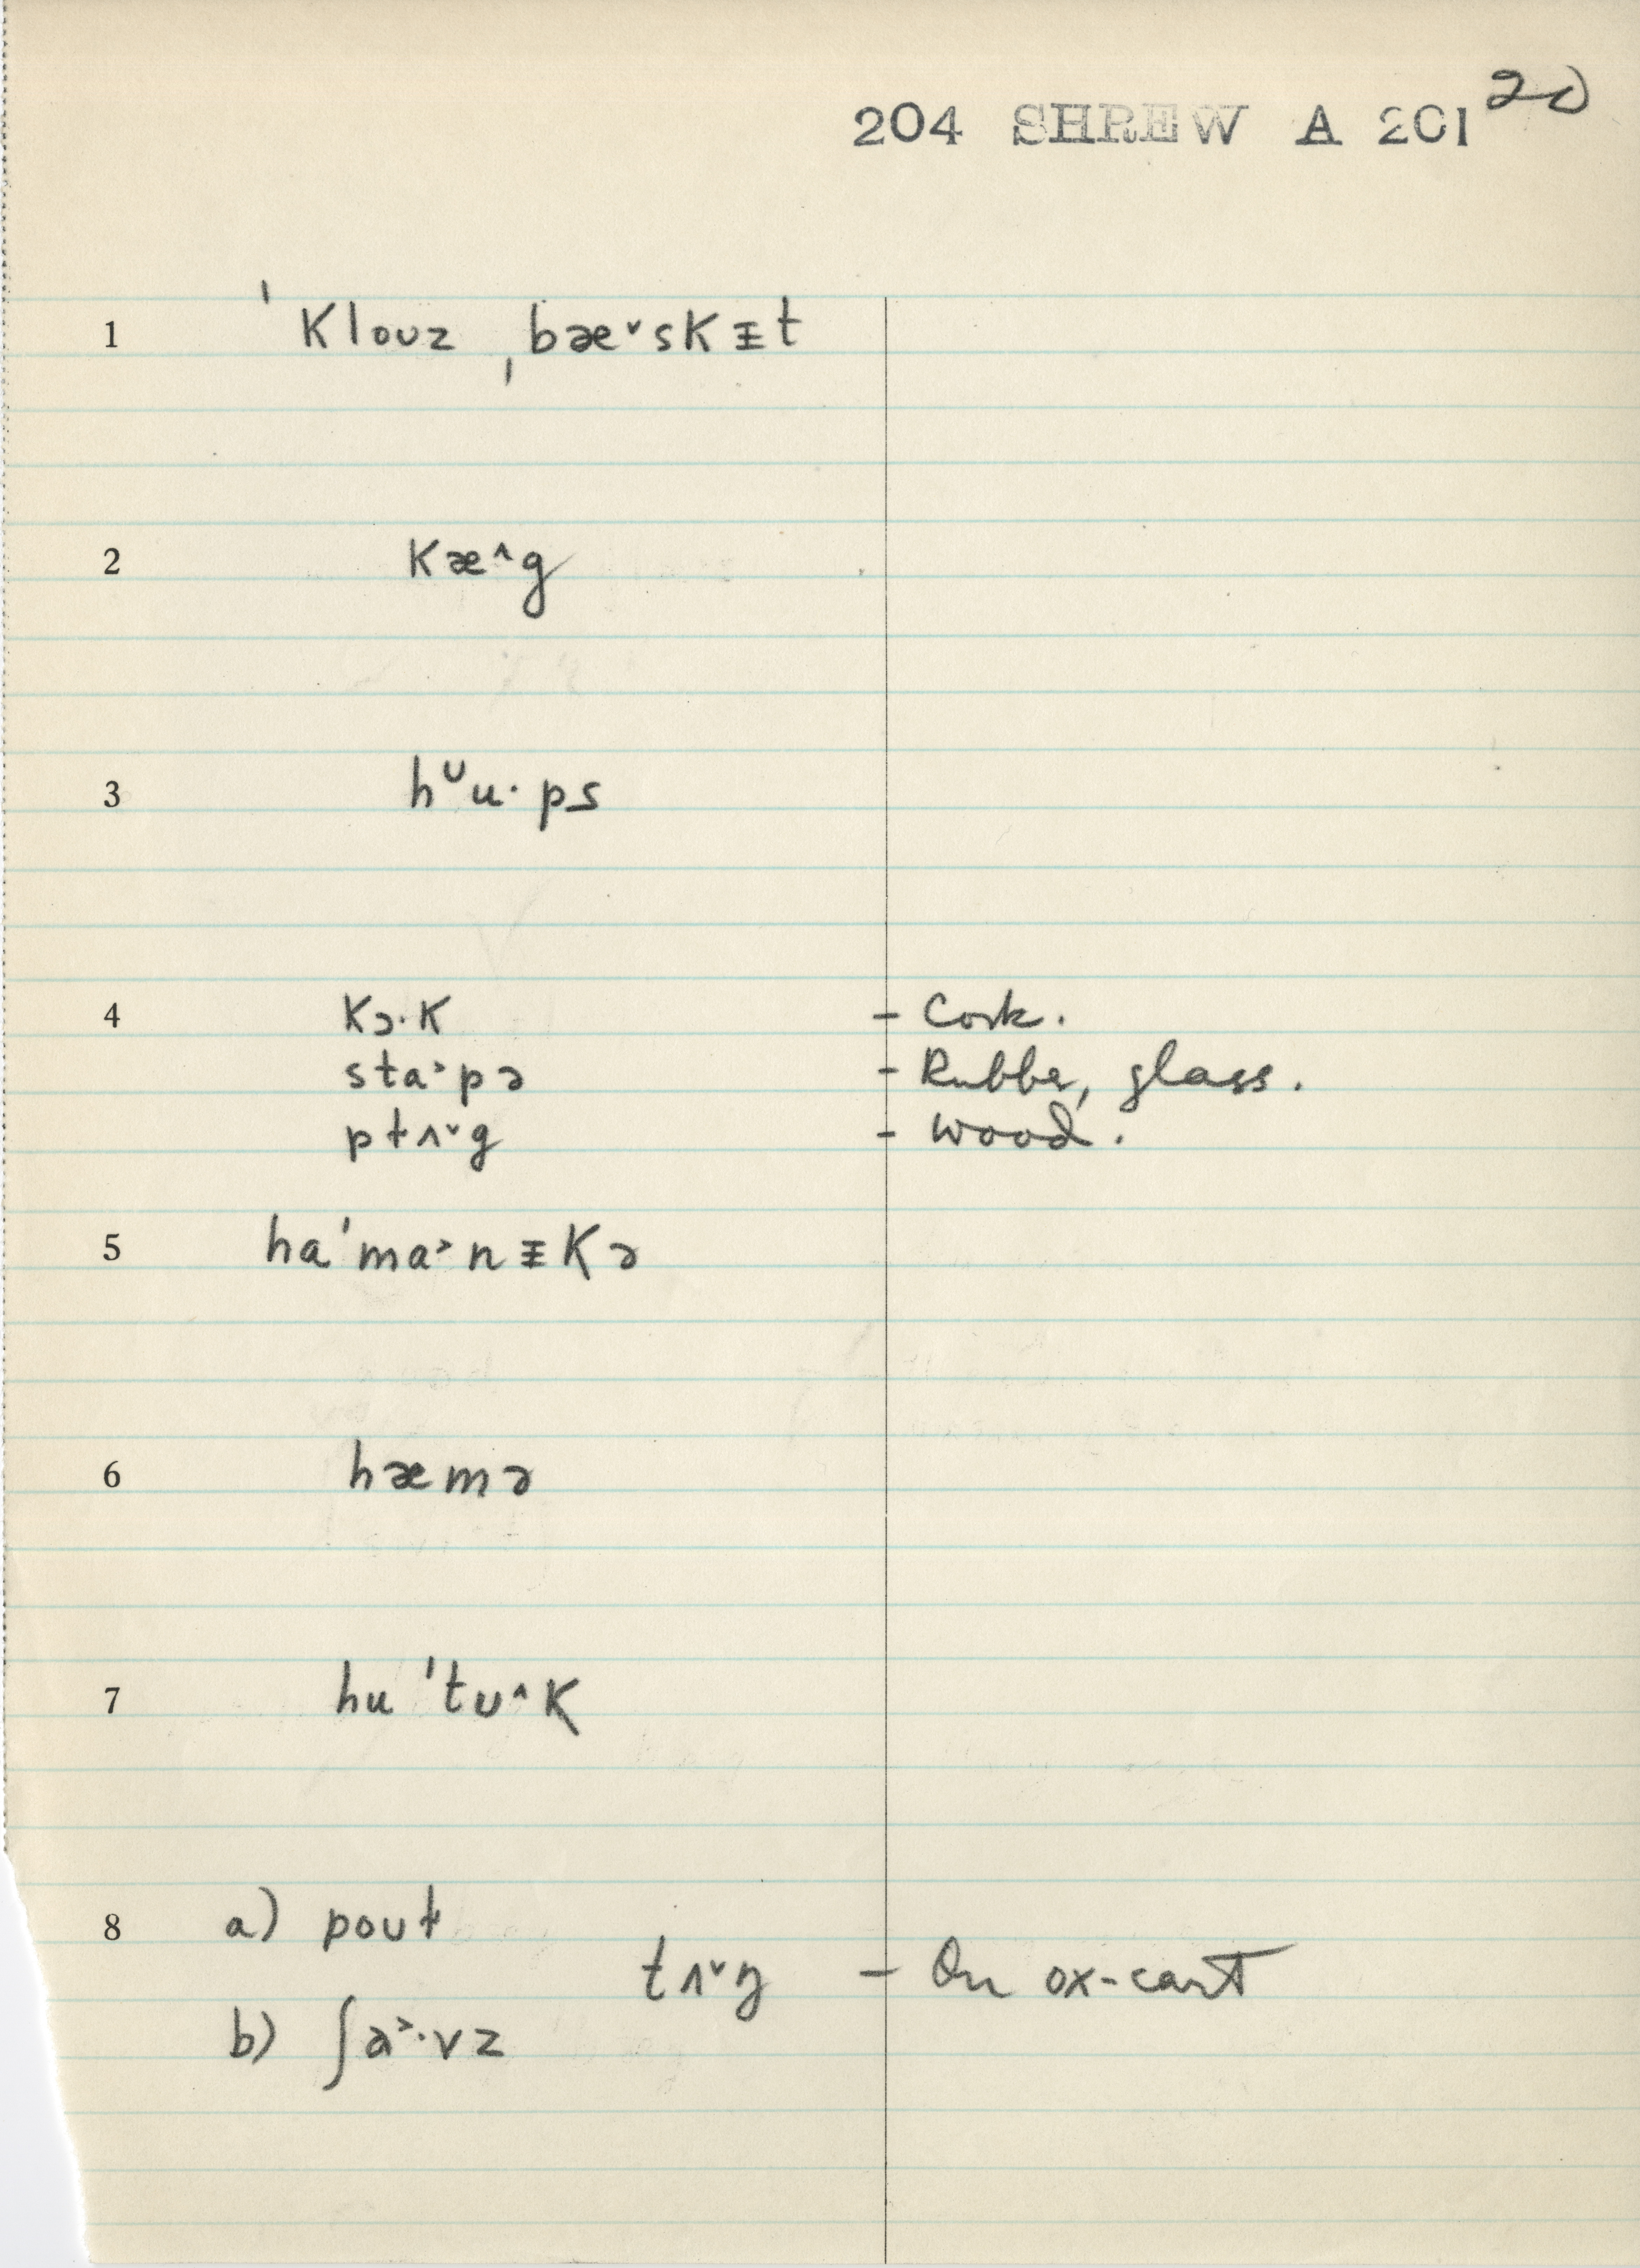 204 SHREW A 201 20
1 ˈKlouz ˌbæ˅sKᵻt
2 Kæ^g
3 hᶷu·ps
4 Kɔ·K - Cork.
sta˃·pə - Rubber, glass.
pɫʌ˅g - wood.
5 haˈma˃nᵻKə
6 hæmə
7 huˈtʊ^K
8 a) pouɫ
tʌ˅ŋ - On ox-cart
b) ʃa˃·vz